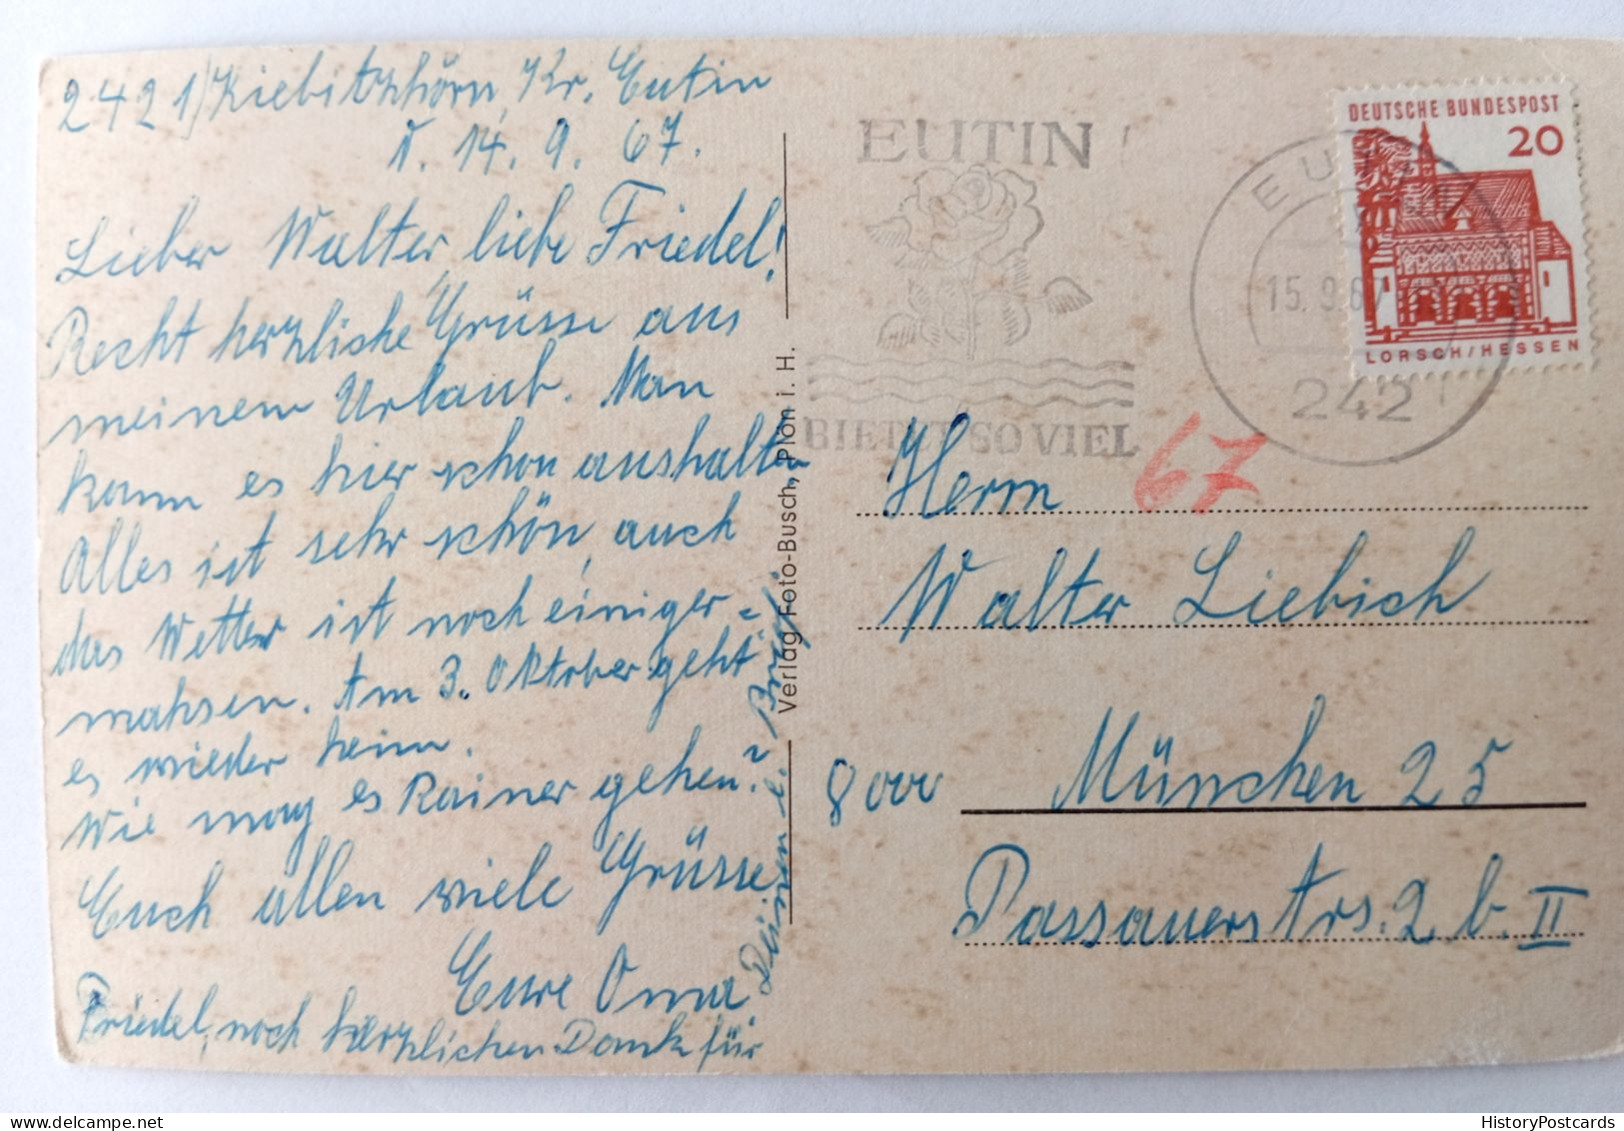 2421/Kiebitzhörn, Kr. Eutin
d. 14. 9. 67.
Lieber Walter, liebe Friedel!
Recht herzliche Grüsse aus
meinem Urlaub. Man
kann es hier schon aushalten
Alles ist sehr schön, auch
das Wetter ist noch einiger=
mahsen. Am 3. Oktober geht
es wieder heim.
Wie mag es Rainer gehen?
Euch allen viele Grüsse
Eure Oma
Friedel, noch herzlichen Dank für
Deinen l. Brief!
Verlag Foto-Busch, Plön i. H.
EUTIN
BIETET SO VIEL
EUTIN
15. 9. 67
242
DEUTSCHE BUNDESPOST
20
LORSCH/HESSEN
67
Herrn
Walter Liebich
8000 München 25
Passauerstrs. 2 b. II
HistoryPostcards